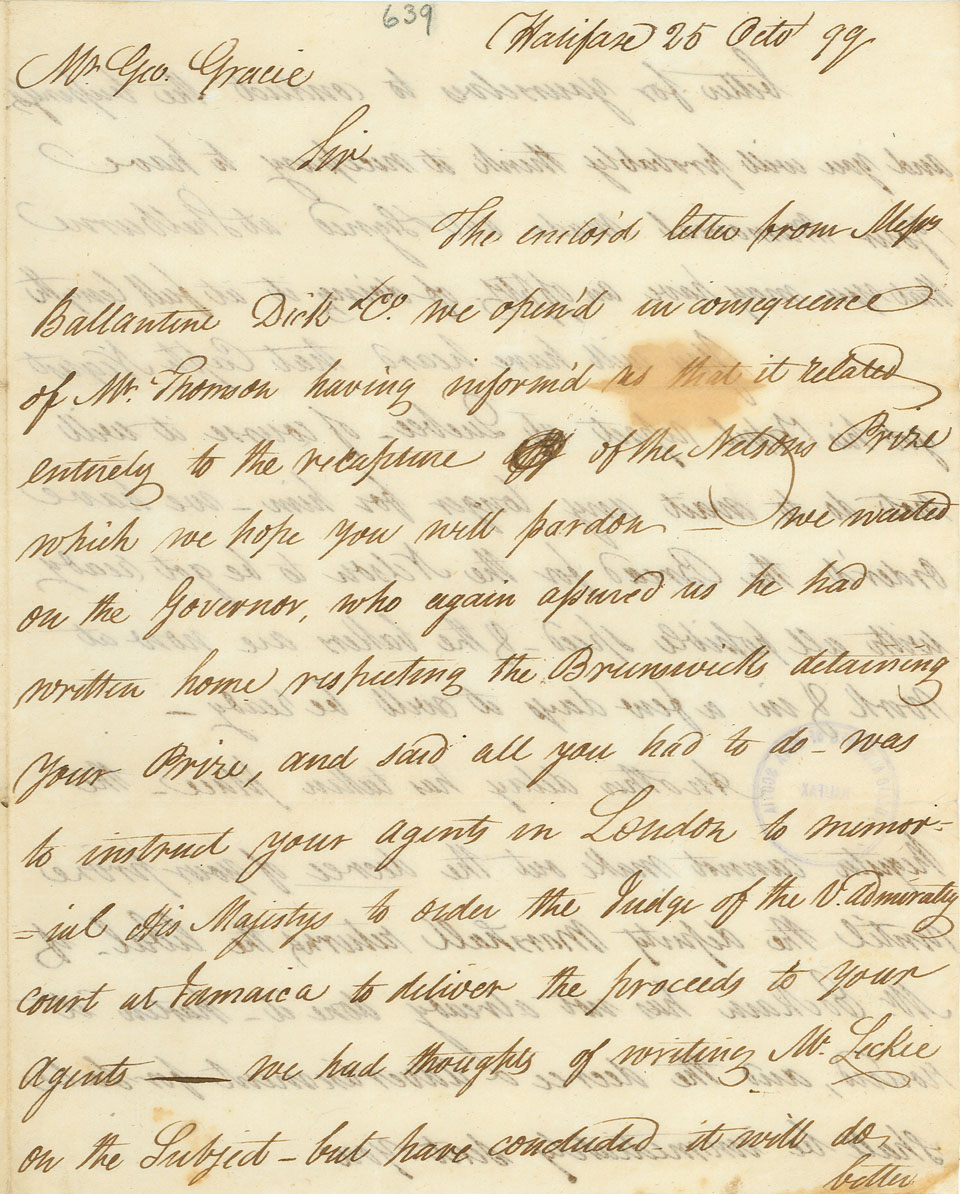 639
Halifax 25 Octo 99
Mr Geo. Gracie
Sir
The enclos'd letter from Messrs
Ballantine Dick & Co. we open'd in consequence
of Mr. Thomson having inform'd us that it related
entirely to the recapture of the Nelsons Prize
which we hope you will pardon — we waited
on the Governor, who again assured us he had
written home respecting the Brunswicks detaining
your Prize, and said all you had to do - was
to instruct your agents in London to memor=
=ial His Majestys to order the Judge of the V. admiralty
court at Jamaica to deliver the proceeds to your
Agents — we had thoughts of writing Mr. Leckie
on the Subject - but have concluded it will do
better